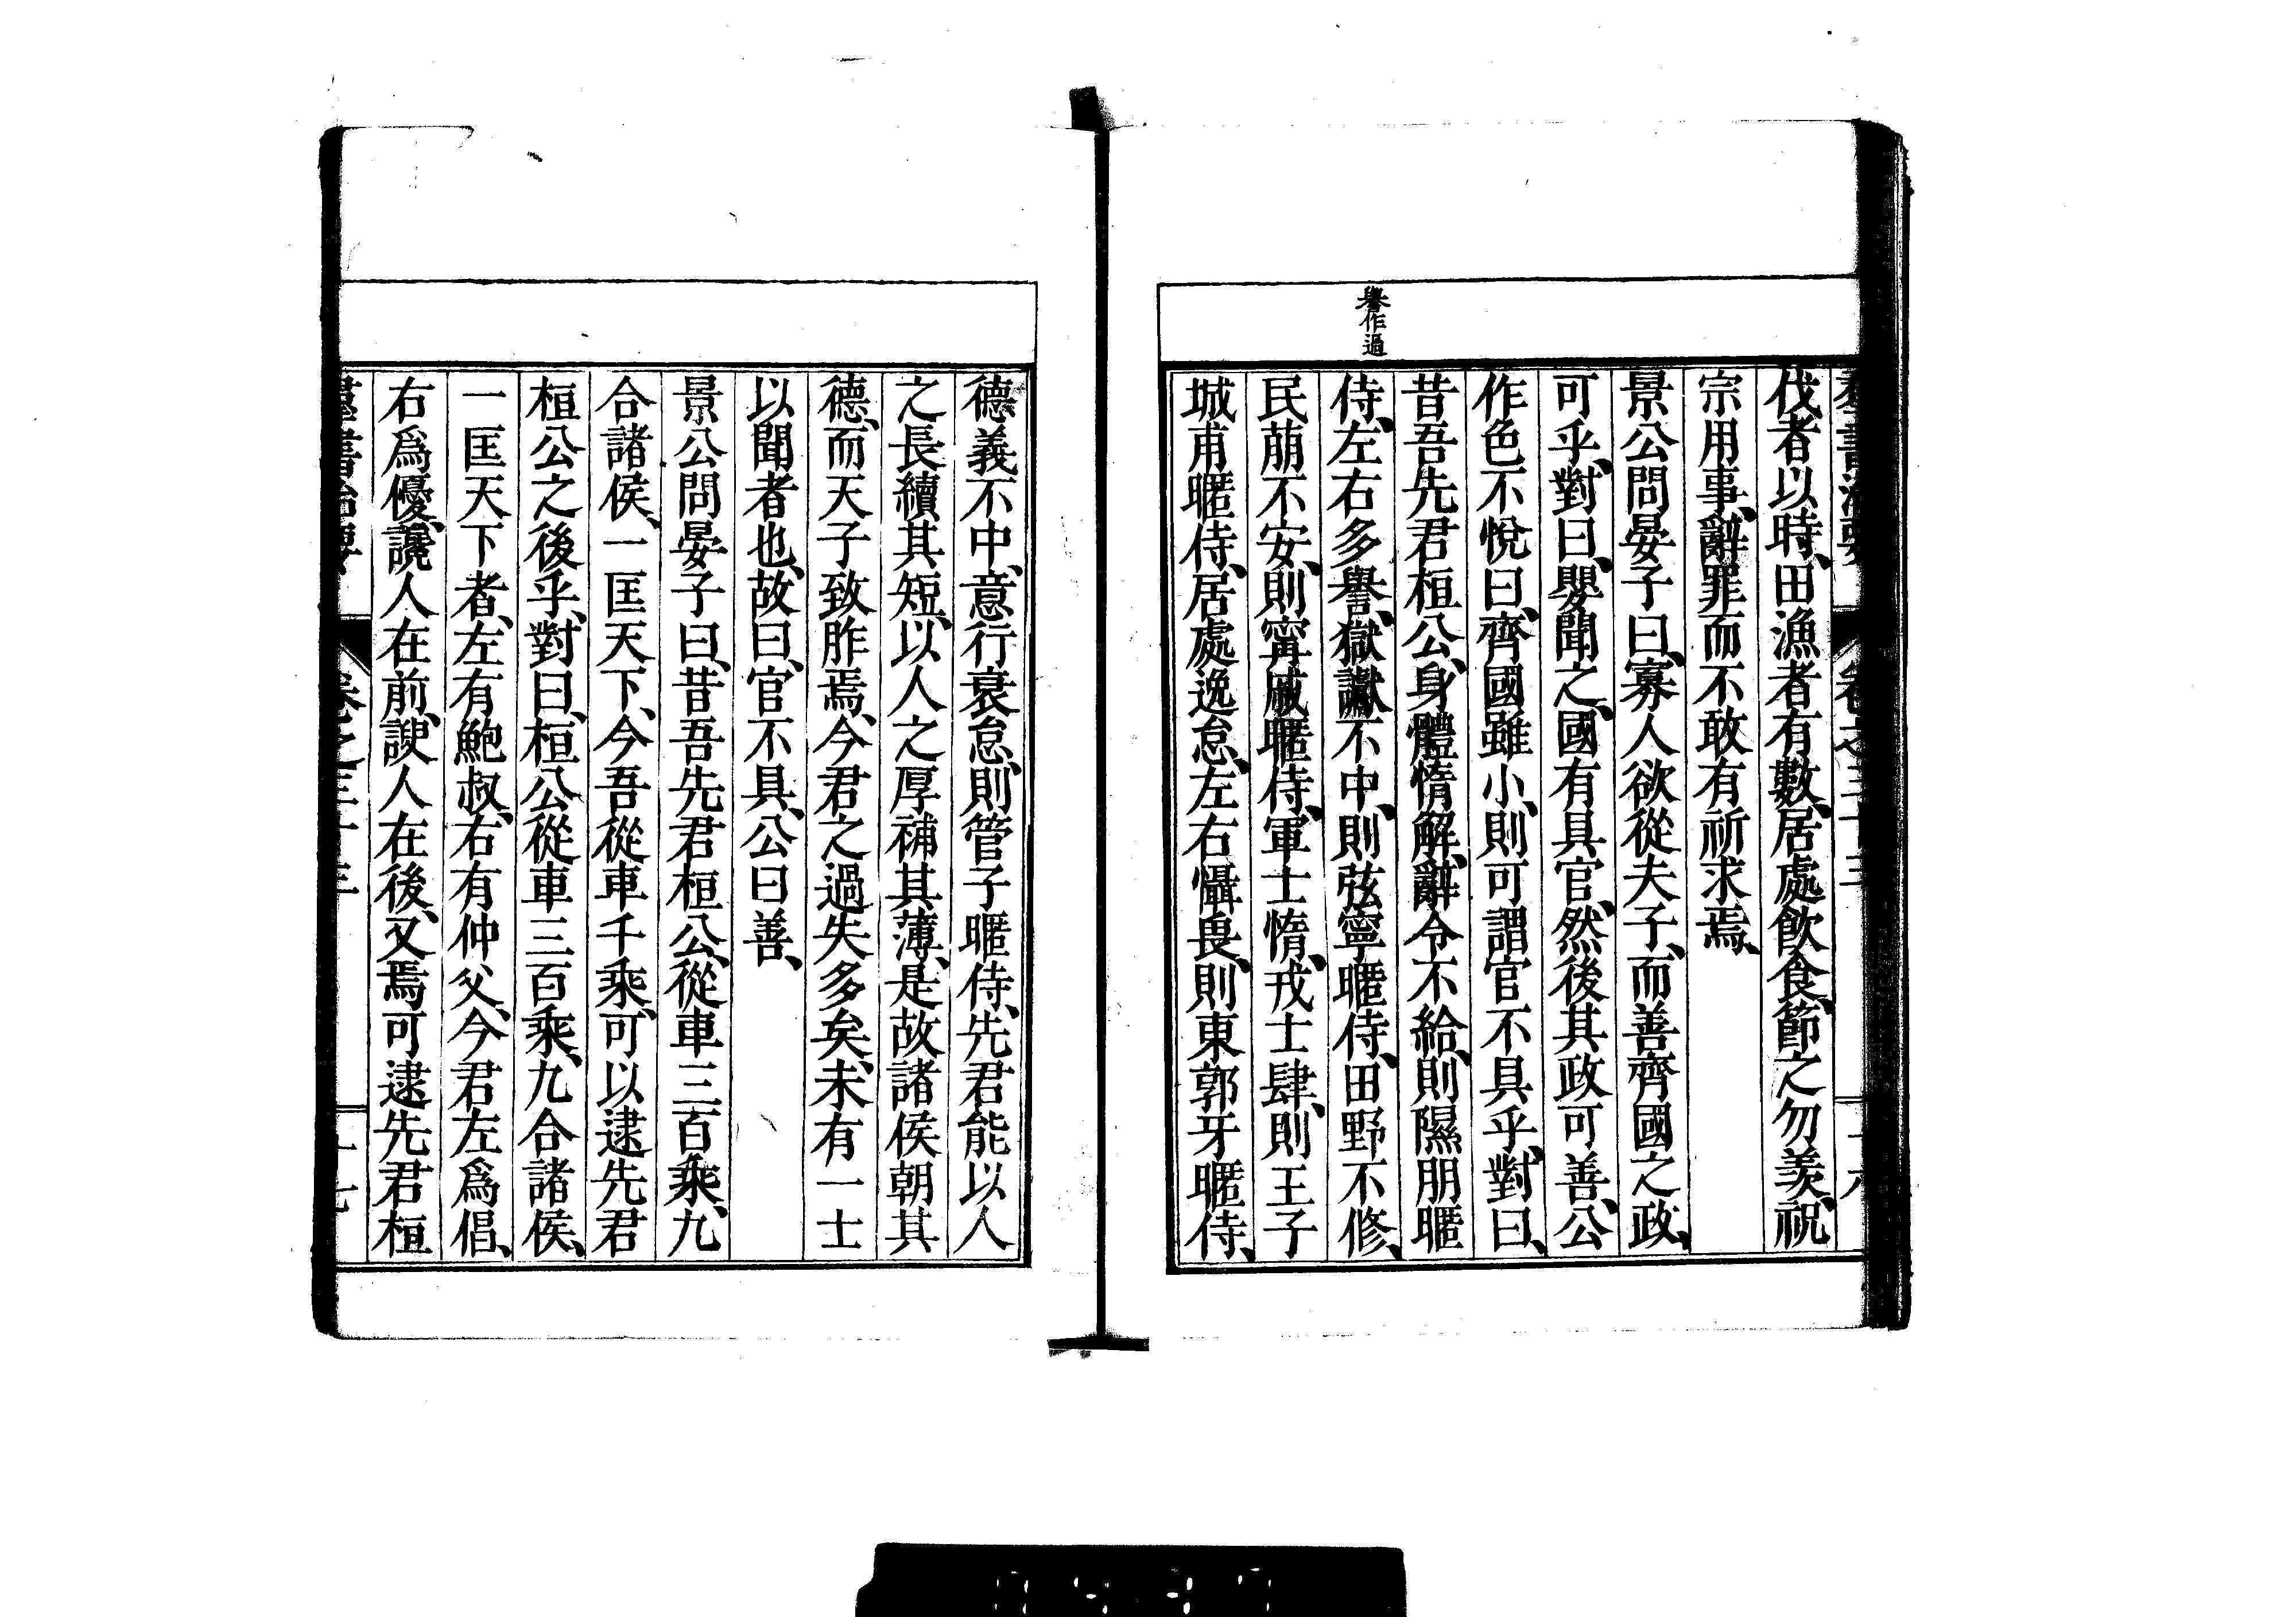 群書治要 卷之三十三 十六
伐者以時、田漁者有數、居處飮食、節之勿羨、祝
宗用事、辭罪而不敢有祈求焉、
景公問晏子曰、寡人欲從夫子、而善齊國之政、
可乎、對曰、嬰聞之、國有具官、然後其政可善、公
作色不悅曰、齊國雖小、則可謂官不具乎、對曰、
昔吾先君桓公、身體惰解、辭令不給、則隰朋暱
侍、左右多譽、獄讞不中、則弦寧暱侍、田野不修、
民萠不安、則甯戚暱侍、軍士惰、戎士肆、則王子
城甫暱侍、居處逸怠、左右懾畏、則東郭牙暱侍、
譽作過
德義不中、意行衰怠、則管子暱侍、先君能以人
之長續其短、以人之厚補其薄、是故諸侯朝其
德、而天子致胙焉、今君之過失多矣、未有一士
以聞者也、故曰、官不具、公曰善、
景公問晏子曰、昔吾先君桓公、從車三百乘、九
合諸侯、一匡天下、今吾從車千乘、可以逮先君
桓公之後乎、對曰、桓公從車三百乘、九合諸侯、
一匡天下者、左有鮑叔、右有仲父、今君左爲倡、
右爲優、讒人在前、諛人在後、又焉可逮先君桓
羣書治要 卷之三十三 十七